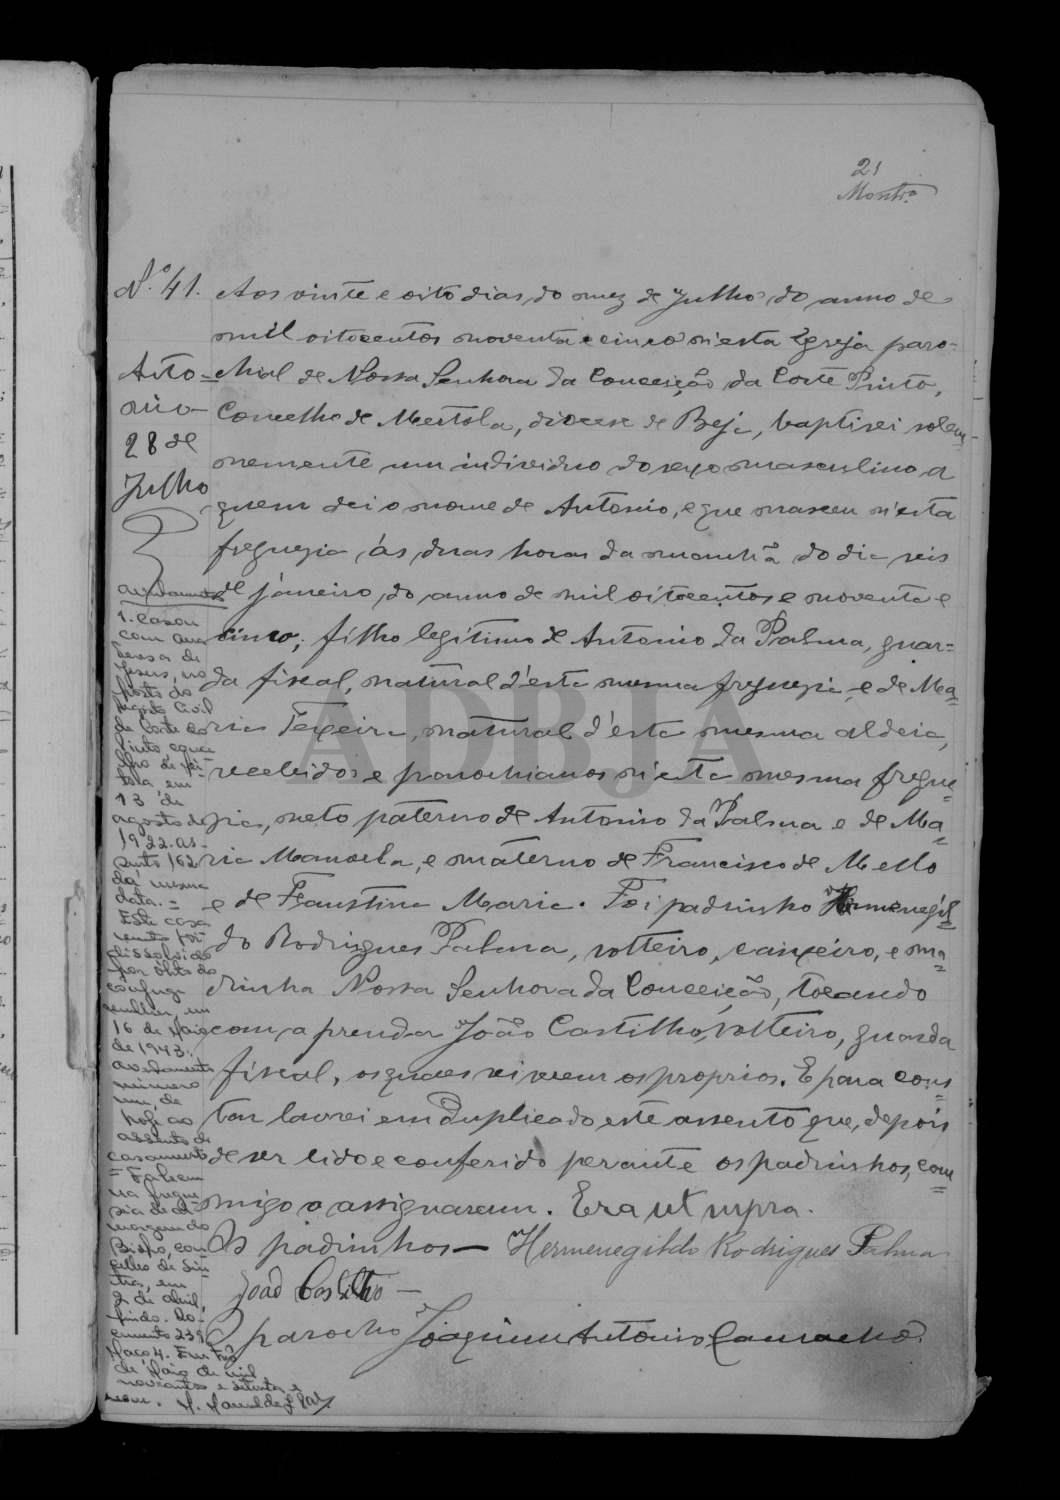 21
Montr.º
N.º 41.
Anto=
nio
28 de
Julho
Aos vinte e oito dias do mez de Julho do anno de
mil oitocentos noventa e cinco n'esta Egreja paro-
chial de Nossa Senhora da Conceição da Corte Pinto,
Concelho de Mertola, diocese de Beja, baptisei solem-
nemente um individuo do sexo masculino a
quem dei o nome de Antonio, e que nasceu n'esta
freguezia ás duas horas da manhã do dia seis
de janeiro do anno de mil oitocentos e noventa e
cinco; filho legitimo de Antonio da Palma, guar=
da fiscal, natural d'esta mesma freguezia, e de Ma=
ria Texeira, natural d'esta mesma aldeia,
recebidos e parochianos n'esta mesma fregue=
zia, neto paterno de Antonio da Palma e de Ma=
ria Manoela, e materno de Francisco de Mello
e de Faustina Maria. Foi padrinho Hermenegil=
do Rodrigues Palma, solteiro, caixeiro, e ma=
drinha Nossa Senhora da Conceição, tocando
com a prenda João Castilho, solteiro, guarda
fiscal, os quaes sei serem os proprios. E para cons=
tar lavrei em duplicado este assento que, depois
de ser lido e conferido perante os padrinhos, com=
migo o assignaram. Era ut supra.
Os padrinhos — Hermenegildo Rodrigues Palma
João Castilho —
O parocho Joaquim Antonio Camacho.
averbamentos
1. Casou
com Ana
Teresa de
Jesus, no
posto do
registo Civil
de Corte do
Pinto, conce
lho de Mér-
tola em
13 de
agosto de
1922. As-
sento 162
da mesma
data. =
Este casa
mento foi
dissolvido
por óbito do
cônjuge
mulher, em
16 de Maio
de 1943.
averbamento
número
um, de
hoje ao
assento de
casamento
= Faleceu
na fregue-
sia de Al-
margem do
Bispo, con-
celho de Sin-
tra, em
2 de abril,
findo. Do-
cumento 239
Maço 4. Em
de Maio de mil
novecentos e setenta e
ADBJA